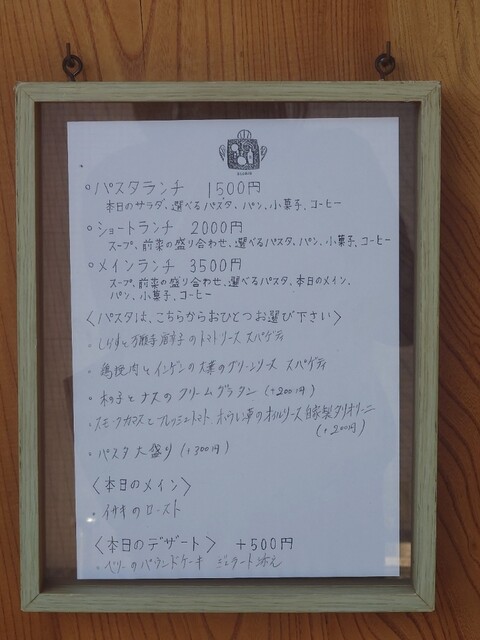 ○パスタランチ 1500円
本日のサラダ、選べるパスタ、パン、小菓子、コーヒー
○ショートランチ 2000円
スープ、前菜の盛り合わせ、選べるパスタ、パン、小菓子、コーヒー
○メインランチ 3500円
スープ、前菜の盛り合わせ、選べるパスタ、本日のメイン、
パン、小菓子、コーヒー
〈パスタは、こちらからおひとつお選び下さい〉
・しらすと万願寺唐辛子のトマトソース スパゲティ
・鶏挽肉とインゲンの大葉のグリーンソース スパゲティ
・木の子とナスのクリームグラタン (+200円)
・スモークカマスとフレッシュトマト ホウレン草のオイルソース 自家製タリオリーニ
(+200円)
・パスタ大盛り (+300円)
〈本日のメイン〉
・イサキのロースト
〈本日のデザート〉 +500円
・ベリーのパウンドケーキ ジェラート添え